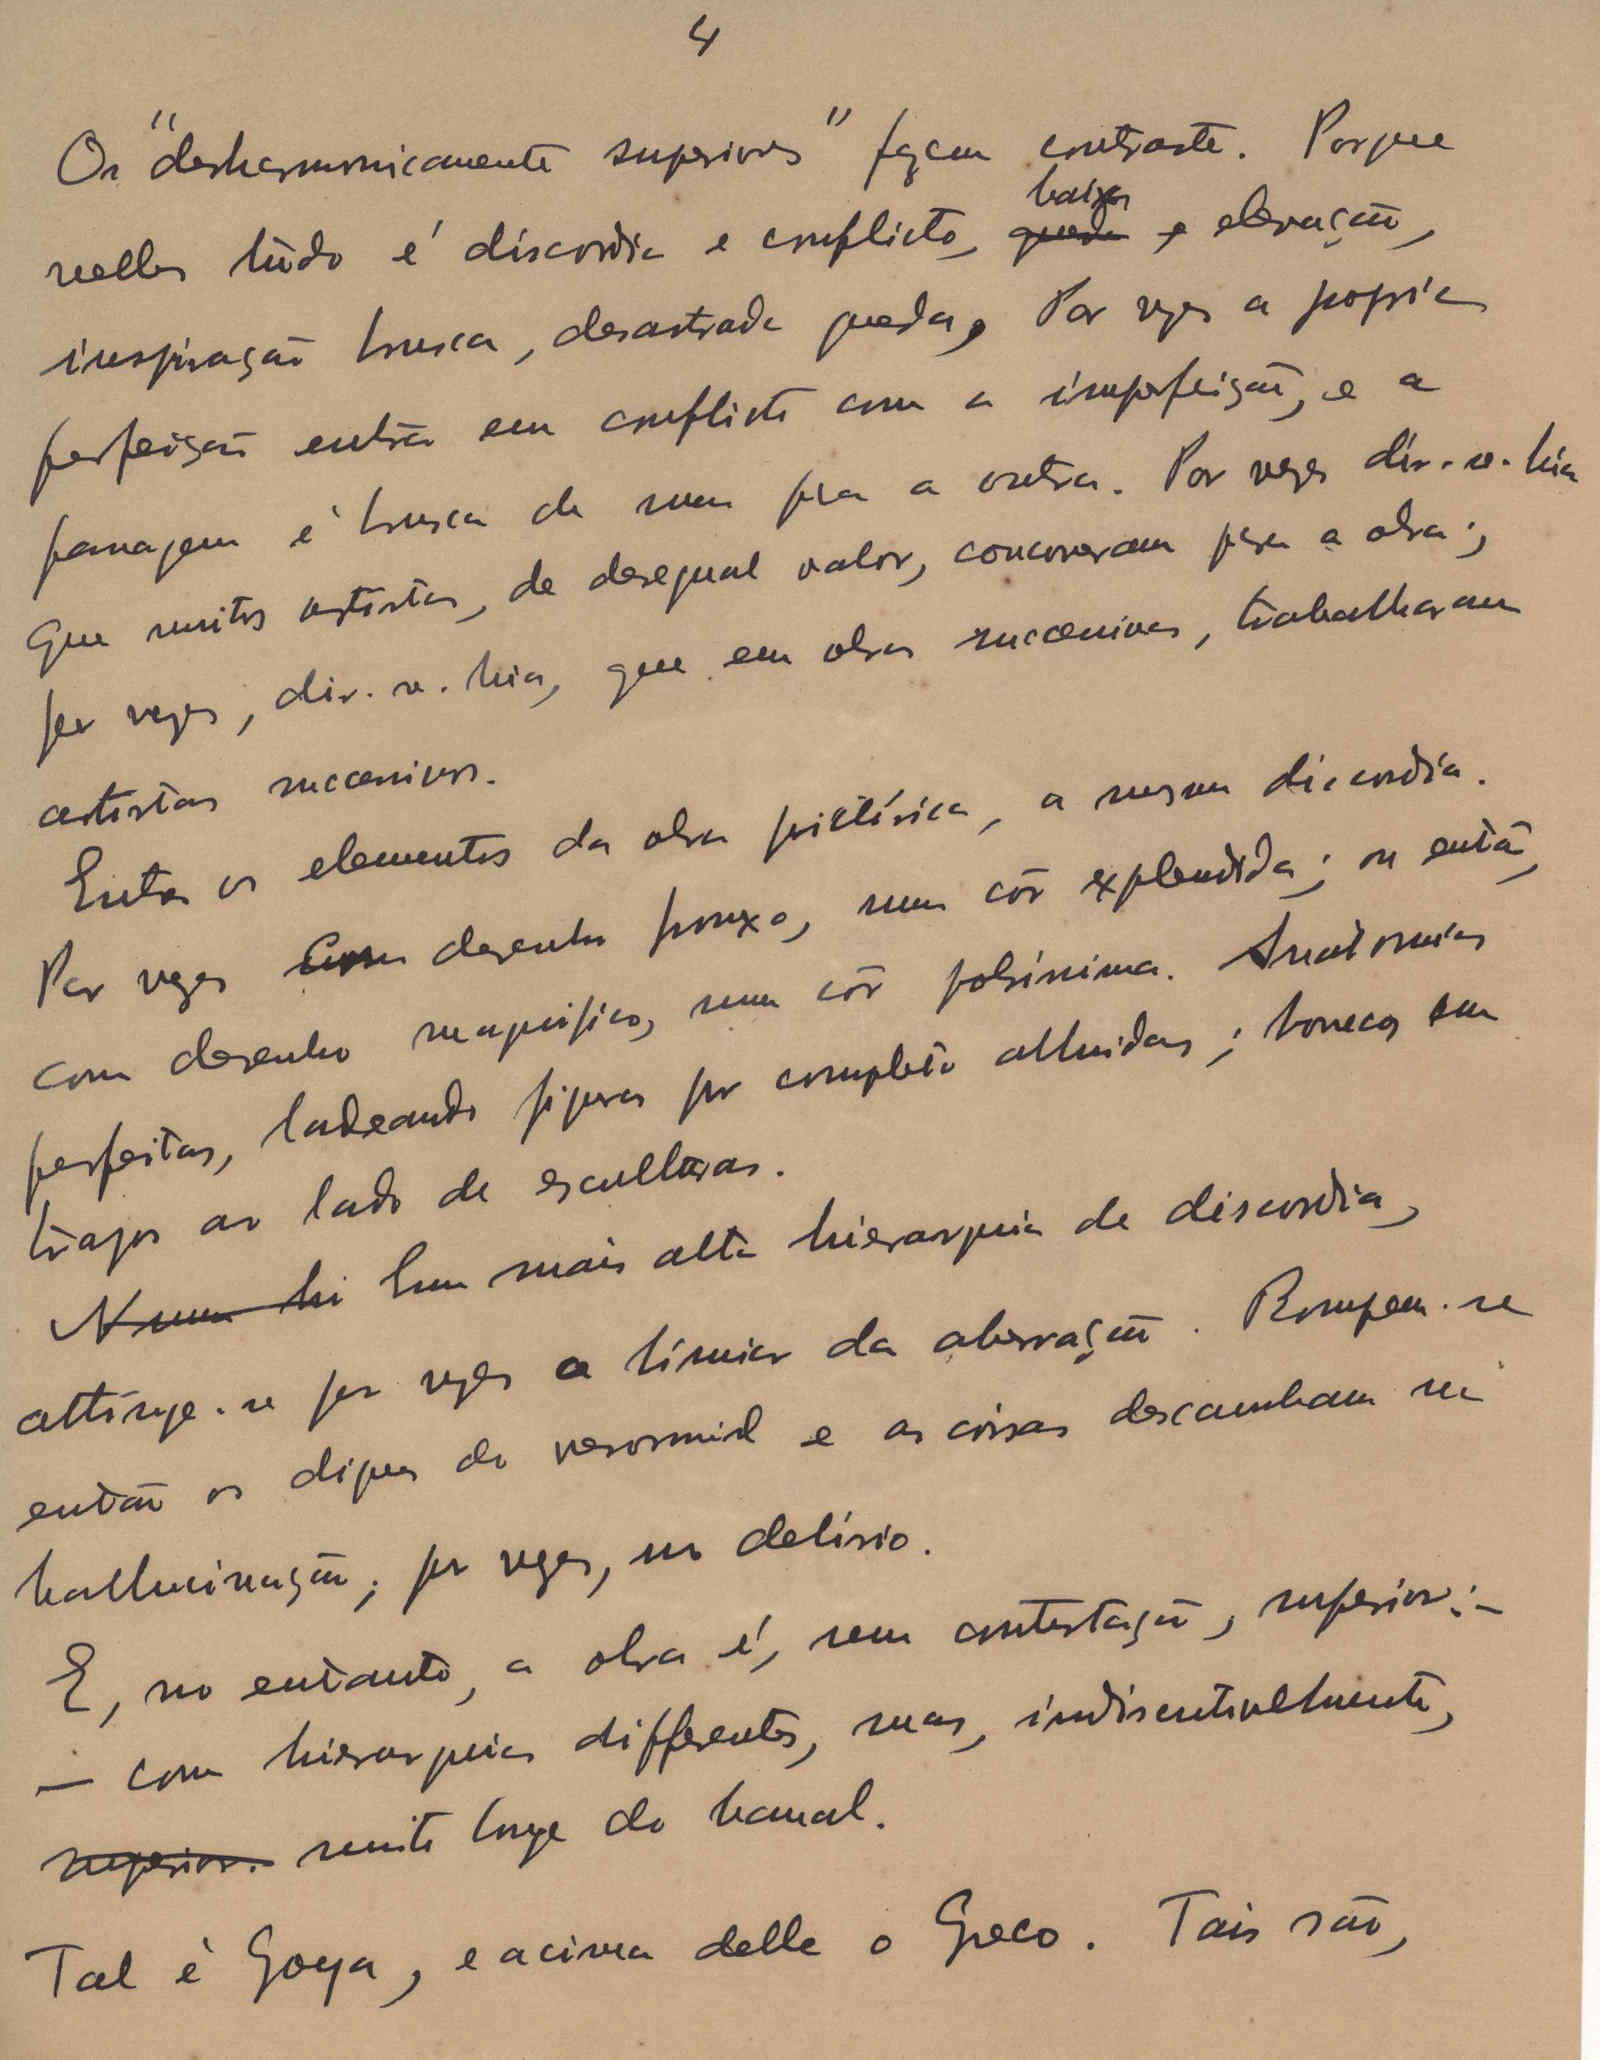 4
Os "desharmonicamente superiores" fazem contraste. Porque
baixa
nelles tudo é discordia e conflicto, queda e elevação,
inspiração brusca, desastrada queda, Por vezes a propria
perfeição entra em conflicto com a imperfeição, e a
passagem é brusca de uma pra a outra. Por vezes dir-se-hia
que muitos artistas, de desegual valor, concorreram para a obra;
por vezes, dir-se-hia, que em obras successivas, trabalharam
artistas successivos.
Entre os elementos da obra pictórica, a mesma discordia.
Por vezes com desenho frouxo, uma côr explendida; ou então,
com desenho magnifico, uma côr pobrissima. Anatomias
perfeitas, ladeando figuras por completo alluidas; bonecos em
trapos ao lado de esculturas.
Numa hi Em mais alta hierarquia de discordia,
attinge-se por vezes o limiar da aberração. Rompem-se
então os diques do normal e as coisas descambam na
hallucinação; por vezes, no delirio.
E, no entanto, a obra é, sem contestação, superior:-
— com hierarquias differentes, mas, indiscutivelmente,
superior. muito longe do banal.
Tal é Goya, e acima delle o Greco. Tais são,